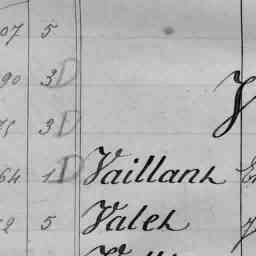 07 5
90 3 D
75 3 D V
64 1 D Vaillant
2 5 Valet